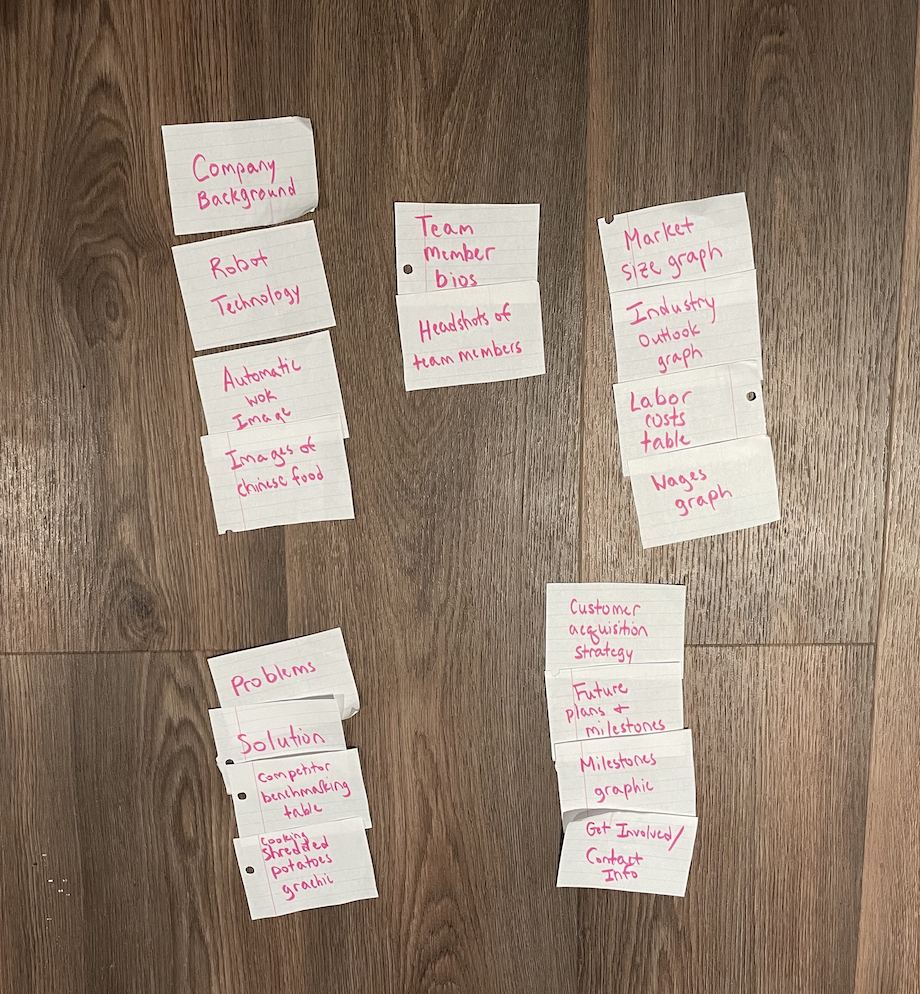 Company
Background
Robot
Technology
Automatic
wok
Image
Images of
chinese food
Team
member
bios
Headshots of
team members
Market
size graph
Industry
Outlook
graph
Labor
costs
table
Wages
graph
Problems
Solution
Competitor
benchmarking
table
Cooking
Shredded
potatoes
grachic
Customer
acquisition
Strategy
Future
plans +
milestones
Milestones
graphic
Get Involved/
Contact
Info